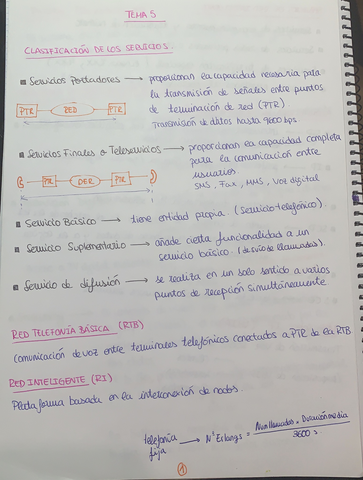 TEMA 5
CLASIFICACIÓN DE LOS SERVICIOS.
Servicios Portadores → proporcionan la capacidad necesaria para
la transmisión de señales entre puntos
de terminación de red (PTR)
Transmisión de datos hasta 9600 bps
PTR RED PTR
Servicios Finales o Teleservicios → proporcionan la capacidad completa
para la comunicación entre
usuarios
SMS, Fax, MMS, voz digital
PTR RED PTR
Servicio Básico → tiene entidad propia. (servicio telefónico).
Servicio Suplementario → añade cierta funcionalidad a un
servicio básico. (desvío de llamadas).
Servicio de difusión → se realiza en un solo sentido a varios
puntos de recepción simultáneamente.
RED TELEFONÍA BÁSICA (RTB)
Comunicación de voz entre terminales telefónicos conectados a PTR de la RTB
RED INTELIGENTE (RI)
Plataforma basada en la interconexión de nodos.
telefonía fija → Nº Erlangs = Num llamadas × Duración media
3600 s.
1